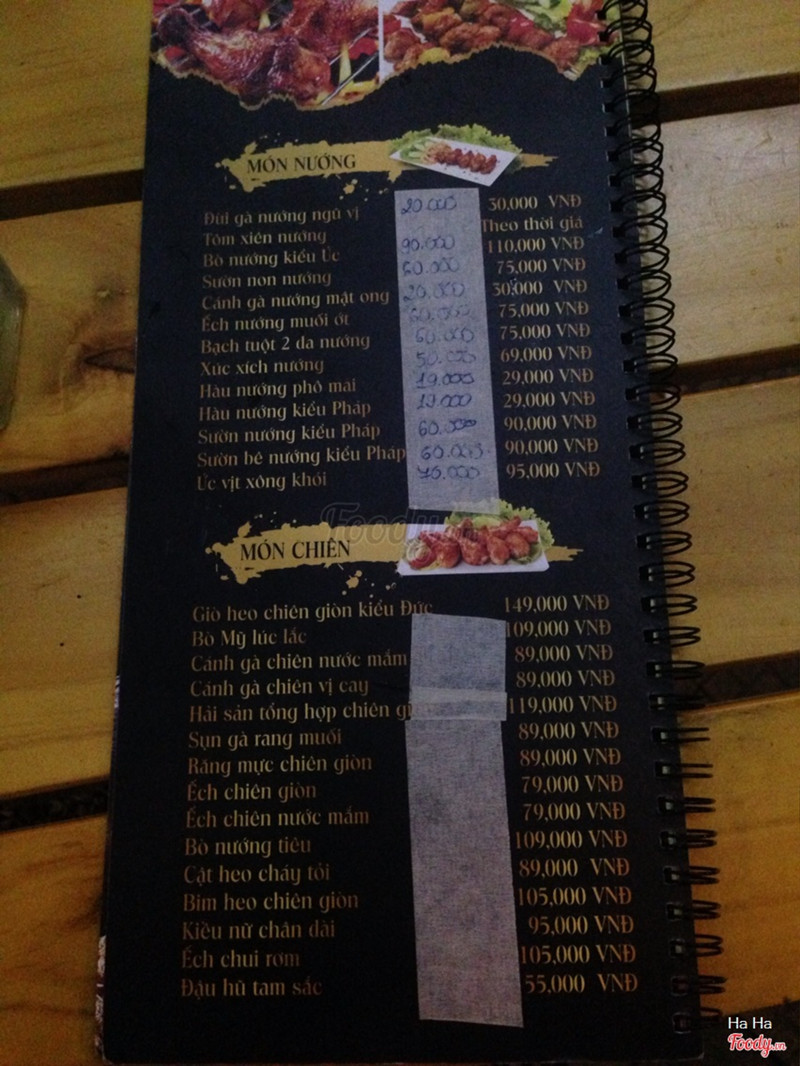 MÓN NƯỚNG
Đùi gà nướng ngũ vị 20.000 30,000 VNĐ
Tôm xiên nướng Theo thời giá
Bò nướng kiểu Úc 90.000 110,000 VNĐ
Sườn non nướng 60.000 75,000 VNĐ
Cánh gà nướng mật ong 20.000 30,000 VNĐ
Ếch nướng muối ớt 60.000 75,000 VNĐ
Bạch tuột 2 da nướng 60.000 75,000 VNĐ
Xúc xích nướng 50.000 69,000 VNĐ
Hàu nướng phô mai 19.000 29,000 VNĐ
Hàu nướng kiểu Pháp 19.000 29,000 VNĐ
Sườn nướng kiểu Pháp 60.000 90,000 VNĐ
Sườn bê nướng kiểu Pháp 60.000 90,000 VNĐ
Ức vịt xông khói 70.000 95,000 VNĐ
Foody.vn
MÓN CHIÊN
Giò heo chiên giòn kiểu Đức 149,000 VNĐ
Bò Mỹ lúc lắc 109,000 VNĐ
Cánh gà chiên nước mắm 89,000 VNĐ
Cánh gà chiên vị cay 89,000 VNĐ
Hải sản tổng hợp chiên 119,000 VNĐ
Sụn gà rang muối 89,000 VNĐ
Răng mực chiên giòn 89,000 VNĐ
Ếch chiên giòn 79,000 VNĐ
Ếch chiên nước mắm 79,000 VNĐ
Bò nướng tiêu 109,000 VNĐ
Cật heo cháy tỏi 89,000 VNĐ
Bim heo chiên giòn 105,000 VNĐ
Kiều nữ chân dài 95,000 VNĐ
Ếch chui rơm 105,000 VNĐ
Đậu hũ tam sắc 55,000 VNĐ
Ha Ha
Foody.vn